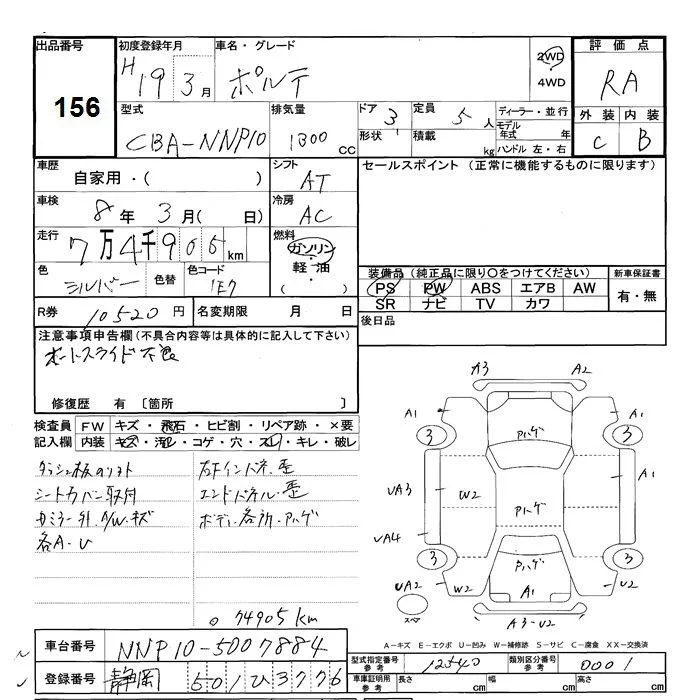 出品番号
156
初度登録年月
H19 3月
車名・グレード
ポルテ
2WD
4WD
評価点
RA
外装 内装
C B
型式
CBA-NNP10
排気量
1300 cc
ドア 3
形状
定員 5人
積載 kg
ディーラー・並行
モデル年式 年
ハンドル 左・右
車歴
自家用・( )
シフト
AT
セールスポイント (正常に機能するものに限ります)
車検
8年 3月( 日)
冷房
AC
走行
7万4千905km
燃料
ガソリン
・軽油・
( )
色
シルバー
色替
色コード
1E7
装備品 (純正品に限り○をつけてください)
PS PW ABS エアB AW
SR ナビ TV カワ
新車保証書
有・無
R券 10520円
名変期限 月 日
後日品
注意事項申告欄 (不具合内容等は具体的に記入して下さい)
オートスライド不良
修復歴 有 [箇所 ]
検査員 FW キズ・飛石・ヒビ割・リペア跡・×要
記入欄 内装 キズ・汚レ・コゲ・穴・スレ・キレ・破レ
シートカバー取付
各A-U
エンドパネル歪
ボディ各所・Pハゲ
74905km
A3 A2
A1 A1
3 3
Pハゲ
UA3 W2 Pハゲ A1
UA4
3 3
Pハゲ
UA2 W2 A1 U2
スペア
A3-U2
A-キズ E-エクボ U-凹み W-補修跡 S-サビ C-腐食 XX-交換済
車台番号 NNP10-5007884
登録番号 静岡 501 ひ 3776
型式指定番号 参考 12540
類別区分番号 参考 0001
車庫証明用 参考 長さ cm 幅 cm 高さ cm